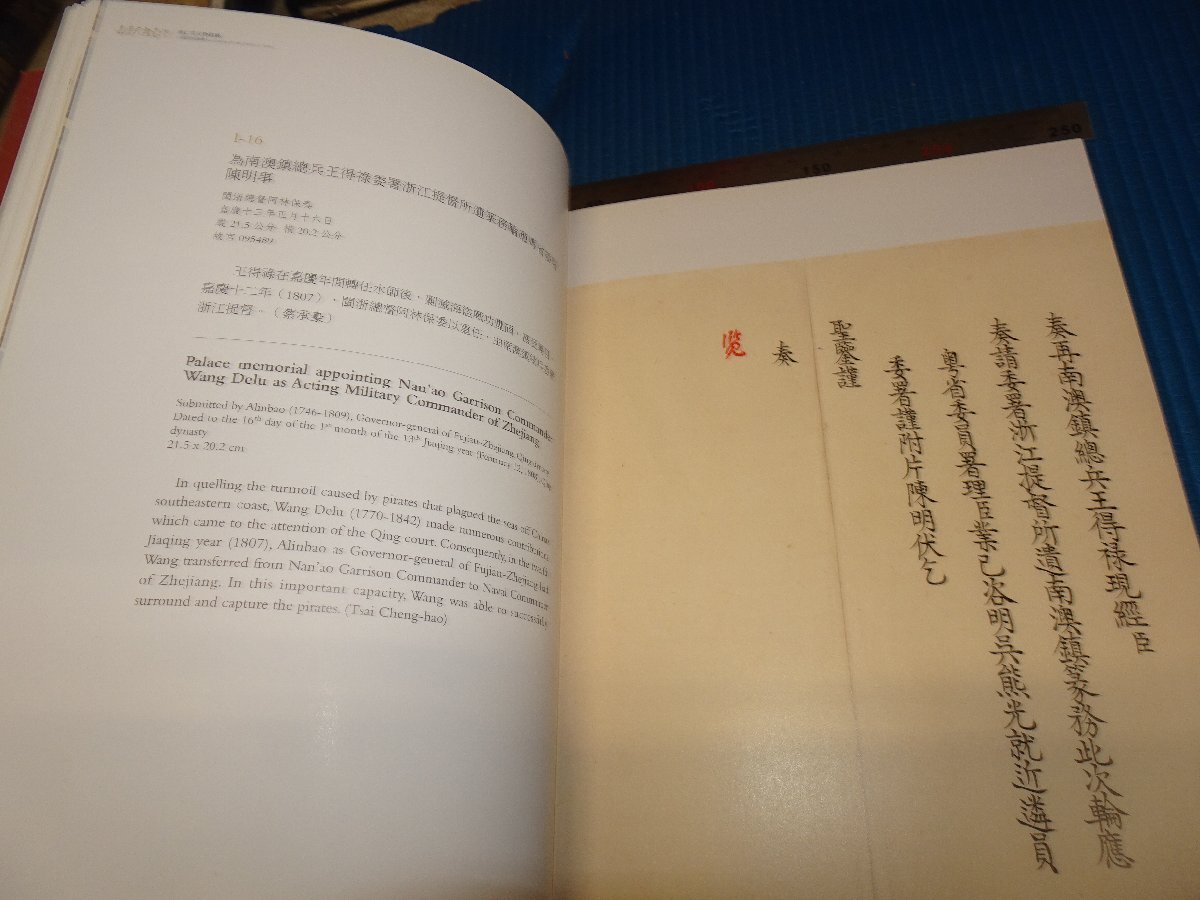 I-16
為南澳鎮總兵王得祿委署浙江提督所遺
陳明事
閩浙總督阿林保奏
嘉慶十三年正月十六日
縱21.5公分 橫20.2公分
故宮095489
王得祿在嘉慶年間轉任水師後，
嘉慶十二年（1807），閩浙總督阿林保
浙江提督。（蔡承豪）
Palace memorial appointing Nan'ao Garrison Commander
Wang Delu as Acting Military Commander of Zhejiang
Submitted by Alinbao (1746-1809), Governor-general of Fujian-Zhejiang, Qing
Dated to the 16th day of the 1st month of the 13th Jiaqing year (February
dynasty
21.5 x 20.2 cm
In quelling the turmoil caused by pirates that plagued the seas off China's
southeastern coast, Wang Delu (1770-1842) made numerous contributions
which came to the attention of the Qing court. Consequently, in the twelfth
Jiaqing year (1807), Alinbao as Governor-general of Fujian-Zhejiang had
Wang transferred from Nan'ao Garrison Commander to Naval Commander
of Zhejiang. In this important capacity, Wang was able to successfully
surround and capture the pirates. (Tsai Cheng-hao)
150
250
奏再南澳鎮總兵王得祿現經臣
奏請委署浙江提督所遺南澳鎮篆務此次輪應
粵省委員署理臣業已咨明吳熊光就近遴員
委署謹附片陳明伏乞
聖鑒謹
奏
覽